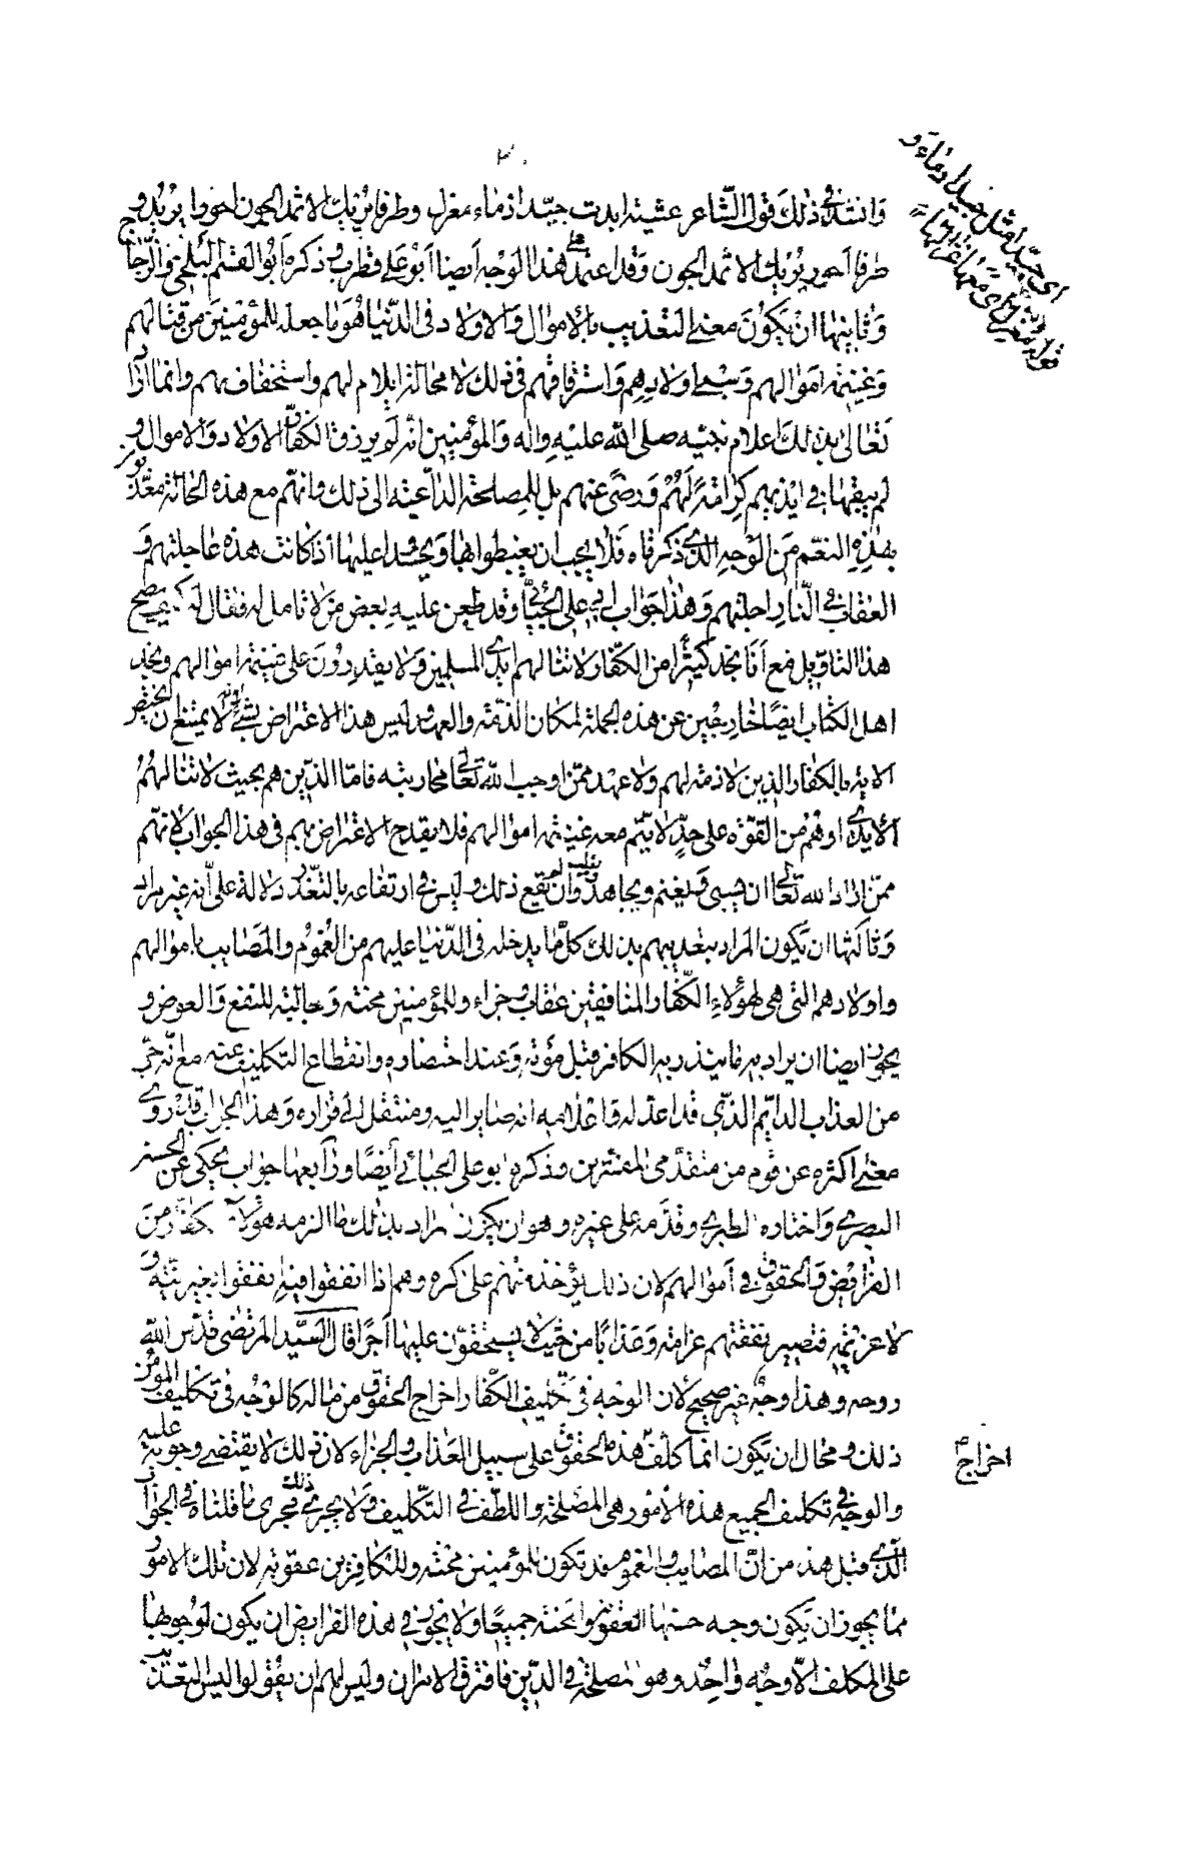 ٣٠
وانشد في ذلك قول الشاعر عشية ابدت جيد ادماء مغزل وطرفا يريك الاثمد الجون احورا يريد و
طرفا احور يريك الاثمد الجون وقد اعتمد على هذا الوجه ايضا ابو علي قطرب وذكره ابو القسم البلخي والزجاج
وثانيها ان يكون معنى التعذيب بالاموال والاولاد في الدنيا هو ما جعله للمؤمنين من قتالهم
وغنيمة اموالهم وسبي اولادهم واسترقاقهم في ذلك لا محالة ايلام لهم واستخفاف بهم وانما اراد
تعالى بذلك اعلام نبيه صلى الله عليه واله والمؤمنين انه لم يرزق الكفار الاولاد والاموال و
لم يبقها في ايديهم كرامة لهم ورضى عنهم بل للمصلحة الداعية الى ذلك وانهم مع هذه الحالة معذبون
بهذه النعم من الوجه الذي ذكرناه فلا يجب ان يغبطوا بها ويحسدوا عليها اذ كانت هذه عاجلتهم و
العقاب في النار اجلتهم وهذا جواب ابي علي الجبائي وقد طعن عليه بعض من لا تامل له فقال كيف يصح
هذا التاويل مع انا نجد كثيرا من الكفار لا تنالهم ايدي المسلمين ولا يقدرون على غنيمة اموالهم ونجد
اهل الكتاب ايضا خارجين عن هذه الجملة لمكان الذمة والعهد وليس هذا الاعتراض بشي لانه لا يمتنع ان يختص
الاية بالكفار الذين لا ذمة لهم ولا عهد ممن اوجب الله تعالى محاربته فاما الذين هم بحيث لا تنالهم
الايدي او هم من القوة على حد لا يتم معه غنيمة اموالهم فلا يقدح الاعتراض بهم في هذا الجواب لانهم
ممن اراد الله تعالى ان يسبى ويغنم ويجاهد ويغلب وان لم يقع ذلك وليس في ارتفاعه بالتعذر دلالة على انه غير مراد
وثالثها ان يكون المراد بتعذيبهم بذلك كل ما يدخله في الدنيا عليهم من الغموم والمصايب باموالهم
واولادهم التي هي لهؤلاء الكفار المنافقين عقاب وجزاء وللمؤمنين محنة وجالبة للنفع والعوض و
يجوز ايضا ان يراد به ما ينذر به الكافر قبل موته وعند احتضاره وانقطاع التكليف عنه مع انه حي
من العذاب الدايم الذي قد اعد له واعلامه انه صاير اليه ومنتقل الى قراره وهذا الجواب قد روي
معنى اكثره عن قوم من متقدمي المفسرين وذكره ابو علي الجبائي ايضا ورابعها جواب يحكى عن الحسن
البصري واختاره الطبري وقدمه على غيره وهو ان يكون المراد بذلك ما الزمه هؤلاء الكفار من
الفرايض والحقوق في اموالهم لان ذلك يؤخذ منهم على كره وهم اذا انفقوا فيه انفقوا بغير نية و
لا عزيمة فتصير نفقتهم غرامة وعذابا من حيث لا يستحقون عليها اجرا قال السيد المرتضى قدس الله
روحه وهذا وجه غير صحيح لان الوجه في تكليف الكفار اخراج الحقوق من ماله كالوجه في تكليف المؤمن
ذلك ومحال ان يكون انما كلف هذه الحقوق على سبيل العذاب والجزاء لان ذلك لا يقتضي وجوبه عليه
والوجه في تكليف الجميع هذه الامور هي المصلحة واللطف في التكليف ولا يجري ذلك مجرى ما قلناه في الجواب
الذي قبل هذه من ان المصايب والغموم قد تكون للمؤمنين محنة وللكافرين عقوبة لان تلك الامور
مما يجوز ان يكون وجه حسنها العقوبة والمحنة جميعا ولا يجوز في هذه الفرايض ان يكون لوجوبها
على المكلف الا وجه واحد وهو المصلحة في الدين فافترق الامران وليس لهم ان يقولوا ليس التعذيب
اي جيدا مثل جيد ادماء و
اخراج